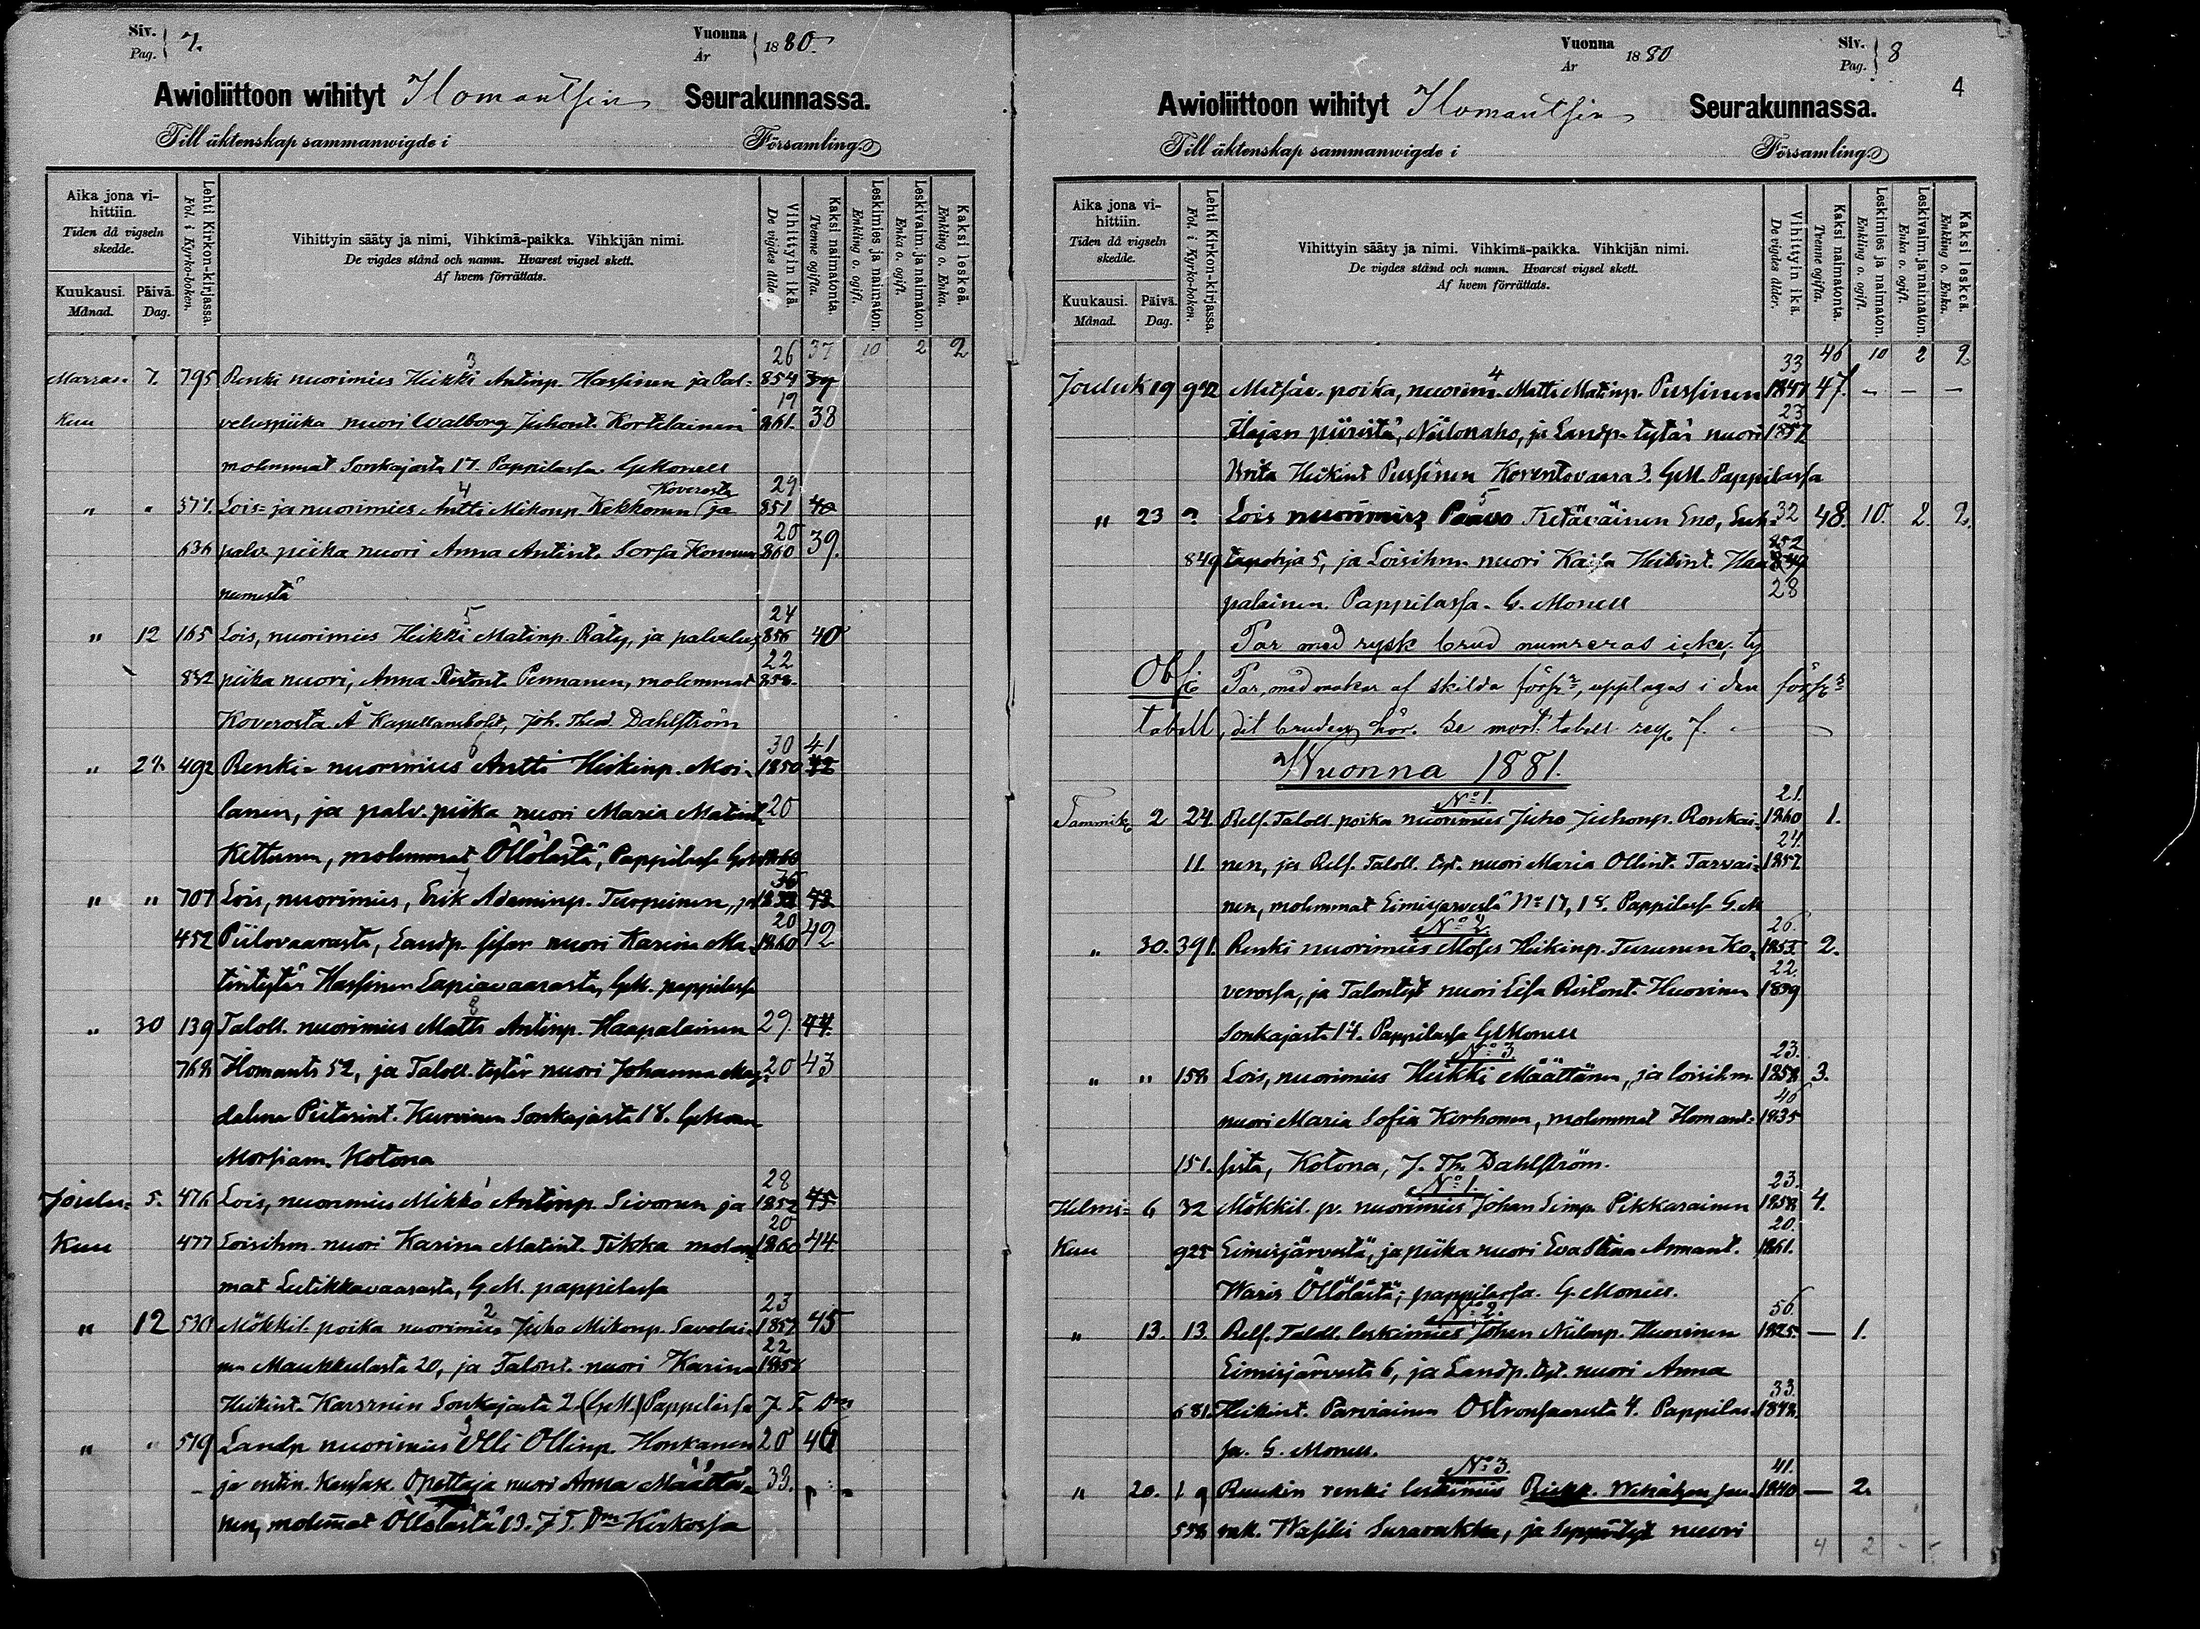 Siv. Pag. 7.
Vuonna År 1880.
Awioliittoon wihityt Ilomantsin Seurakunnassa.
Till äktenskap sammanwigde i Församling.
Aika jona vihittiin. Tiden då vigseln skedde.
Kuukausi. Månad.
Päivä. Dag.
Lehti Kirkon-kirjassa. Fol. i Kyrko-boken.
Vihittyin sääty ja nimi, Vihkimä-paikka. Vihkijän nimi.
De vigdes stånd och namn. Hvarest vigsel skett.
Af hvem förrättats.
Vihittyin ikä. De vigdes ålder.
Kaksi naimatonta. Tvenne ogifta.
Leskimies ja naimaton. Enkling o. ogift.
Leskivaim. ja naimaton. Enka o. ogift.
Kaksi leskeä. Enkling o. Enka.
3 26 37 10 2 2
Marras- 7. 795 Renki nuorimies Heikki Antinp. Hassinen ja Pal- 854
19
Kuu veluspiika nuori Walborg Juhont. Kortelainen 861. 38
molemmat Sonkajasta 17. Pappilassa GMonell
4 Koverosta 29
" " 577. Lois- ja nuorimies Antti Mikonp. Kekkonen ja 851 40
20
636 palv. piika nuori Anna Antint. Sorsa Konnun 860 39.
niemestä
5 24
" 12 165 Lois, nuorimies Heikki Matinp. Räty, ja palvelus 856 40
22
832 piika nuori, Anna Ristont. Pennanen, molemmat 858.
Koverosta. Å Kapellansbolet, Joh. Theod. Dahlström
6 30 41
" 21. 492 Renki- nuorimies Antti Heikinp. Moi- 1850 42
lanen, ja palv. piika nuori Maria Matint. 20
Kettunen, molemmat Öllölästä, Pappilassa GM 1860
7
" " 707 Lois, nuorimies, Erik Adaminp. Turpeinen, ja
20
452 Piilovaarasta, Landp. sisar nuori Karina Ma- 1860 42
tintytär Hassinen Lapiavaarasta, GM. pappilassa
8
" 30 139 Taloll. nuorimies Matti Antinp. Haapalainen 29. 44.
768 Ilomants 52, ja Taloll. tytär nuori Johanna Mag- 20 43
dalena Pietarint. Kurvinen Sonkajasta 18. GMonell
Morsiam. Kotona
28
Joulu- 5. 476 Lois, nuorimies Mikko Antinp. Sivonen ja 1852 45
20
Kuu 477 Loisihm. nuori Karina Matint. Tikka molem 1860 44.
mat Lutikkavaarasta, G.M. pappilassa
2 23
" 12 530 Mökkil. poika nuorimies Juho Mikonp. Savolai- 1857 45
22
nen Maukkulasta 20, ja Talont. nuori Karina 1858
Heikint. Karvinen Sonkajasta 2 (GM.) Pappilassa J. T. Dm
3
" " 519 Landp nuorimies Olli Ollinp. Honkanen 20 46
ja entin. Kansak. Opettaja nuori Anna Määttä- 33.
nen, molemmat Öllölästä 13. J T. Dm Kirkossa
Vuonna År 1880
Siv. Pag. 8
4
Awioliittoon wihityt Ilomantsin Seurakunnassa.
Till äktenskap sammanwigde i Församling.
Aika jona vihittiin. Tiden då vigseln skedde.
Kuukausi. Månad.
Päivä. Dag.
Lehti Kirkon-kirjassa. Fol. i Kyrko-boken.
Vihittyin sääty ja nimi. Vihkimä-paikka. Vihkijän nimi.
De vigdes stånd och namn. Hvarest vigsel skett.
Af hvem förrättats.
Vihittyin ikä. De vigdes ålder.
Kaksi naimatonta. Tvenne ogifta.
Leskimies ja naimaton. Enkling o. ogift.
Leskivaim. ja naimaton. Enka o. ogift.
Kaksi leskeä. Enkling o. Enka.
4 33 46 10 2 2
Jouluk 19 Metsäv. poika, nuorim. Matti Matinp. Pussinen 1847 47. — — —
23
Ilajan piiristä, Niilonaho, ja Landp. tytär nuori 1857
Brita Heikint Pussinen Korentovaara 3. GM. Pappilassa
5
" 23 ? Lois nuorimies Paavo Tietäväinen Eno, Luh- 32 48. 10. 2 2.
852
849 tapohja 5, ja Loisihm. nuori Kaisa Heikint. Haa
palainen. Pappilassa. G. Monell 28
Par med rysk brud numreras icke, ty
Obs Par, med makar af skilda försr, upptages i den försr
tabell, dit bruden hör. Se mort. tabell
Wuonna 1881.
No 1. 21.
Tammik 2 24. Relf. Taloll. poika nuorimies Juho Juhonp. Ronkai- 1860 1.
24.
11. nen, ja Relf. Taloll. tyt. nuori Maria Ollint. Tarvai- 1857.
nen, molemmat Eimisjarvestä No 17, 18. Pappilassa G. M
No 2. 26.
" 30. 391. Renki nuorimies Moses Heikinp. Turunen Ko- 1855 2.
22.
verossa, ja Talontyt nuori Lisa Ristont. Huovinen 1859
Sonkajasta 14. Pappilassa GMonell
No 3. 23.
" " 158 Lois, nuorimies Heikki Määttänen, ja loisihm. 1858 3.
nuori Maria Sofia Korhonen, molemmat Ilomant- 1835
151. sista, Kotona, J. Th. Dahlström.
No 1. 23.
Helmi- 6 32 Mökkil. p. nuorimies Johan Simp. Pikkarainen 1858 4.
20.
Kuu 925 Eimisjärvestä, ja piika nuori Eva Stina Armant. 1861.
Waris Öllölästä; pappilassa. G. Monell.
No 2. 56
" 13. 13. Relf. Taloll. leskimies Johan Niilonp. Huovinen 1825 — 1.
Eimisjärvestä 6, ja Landp. tyt. nuori Anna
33.
681. Heikint. Parviainen Ostronsaaresta 4. Pappilas- 1848.
sa. G. Monell.
No 3. 41.
" 20. 1 9 Ruukin renki leskimies 1840 — 2.
558 Wasili Suravukka, ja nuori
4 2 - -